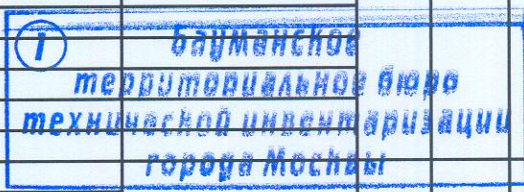 1 Бауманское
территориальное бюро
технической инвентаризации
города Москвы